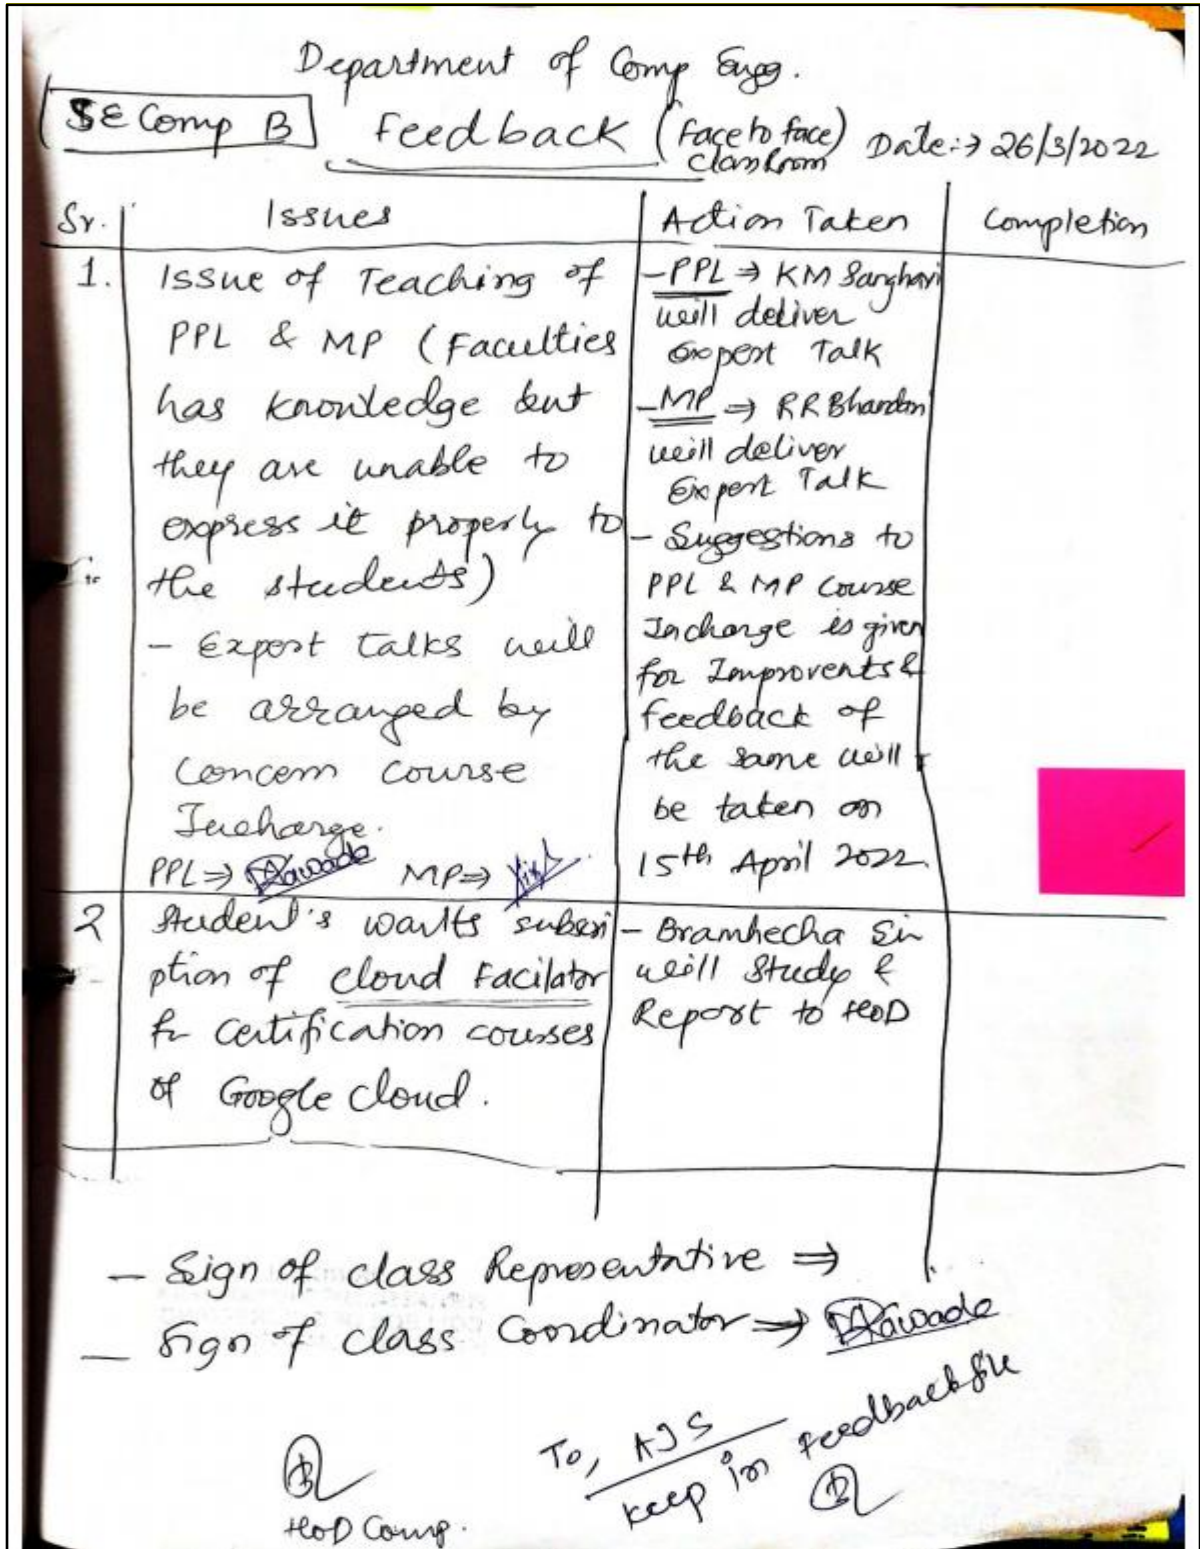 Department of Comp Engg.
SE Comp B
Feedback (Face to face)
Classroom
Date:→ 26/3/2022
Sr.
Issues
Action Taken
Completion
1.
Issue of Teaching of
PPL & MP (Faculties
has knowledge but
they are unable to
express it properly to
the students)
- Expert talks will
be arranged by
Concern course
Incharge.
PPL⇒
MP⇒
- PPL ⇒ KM Sanghavi
will deliver
Expert Talk
- MP ⇒ RR Bhandari
will deliver
Expert Talk
- Suggestions to
PPL & MP Course
Incharge is given
for Improvents &
feedback of
the same will
be taken on
15th April 2022
2
Student's wants subscri
ption of cloud Facilator
for Certification courses
of Google Cloud.
- Bramhecha Sir
will Study &
Report to HoD
- Sign of class Representative ⇒
- Sign of class Coordinator ⇒
HoD Comp.
To, AJS
Keep in Feedback file